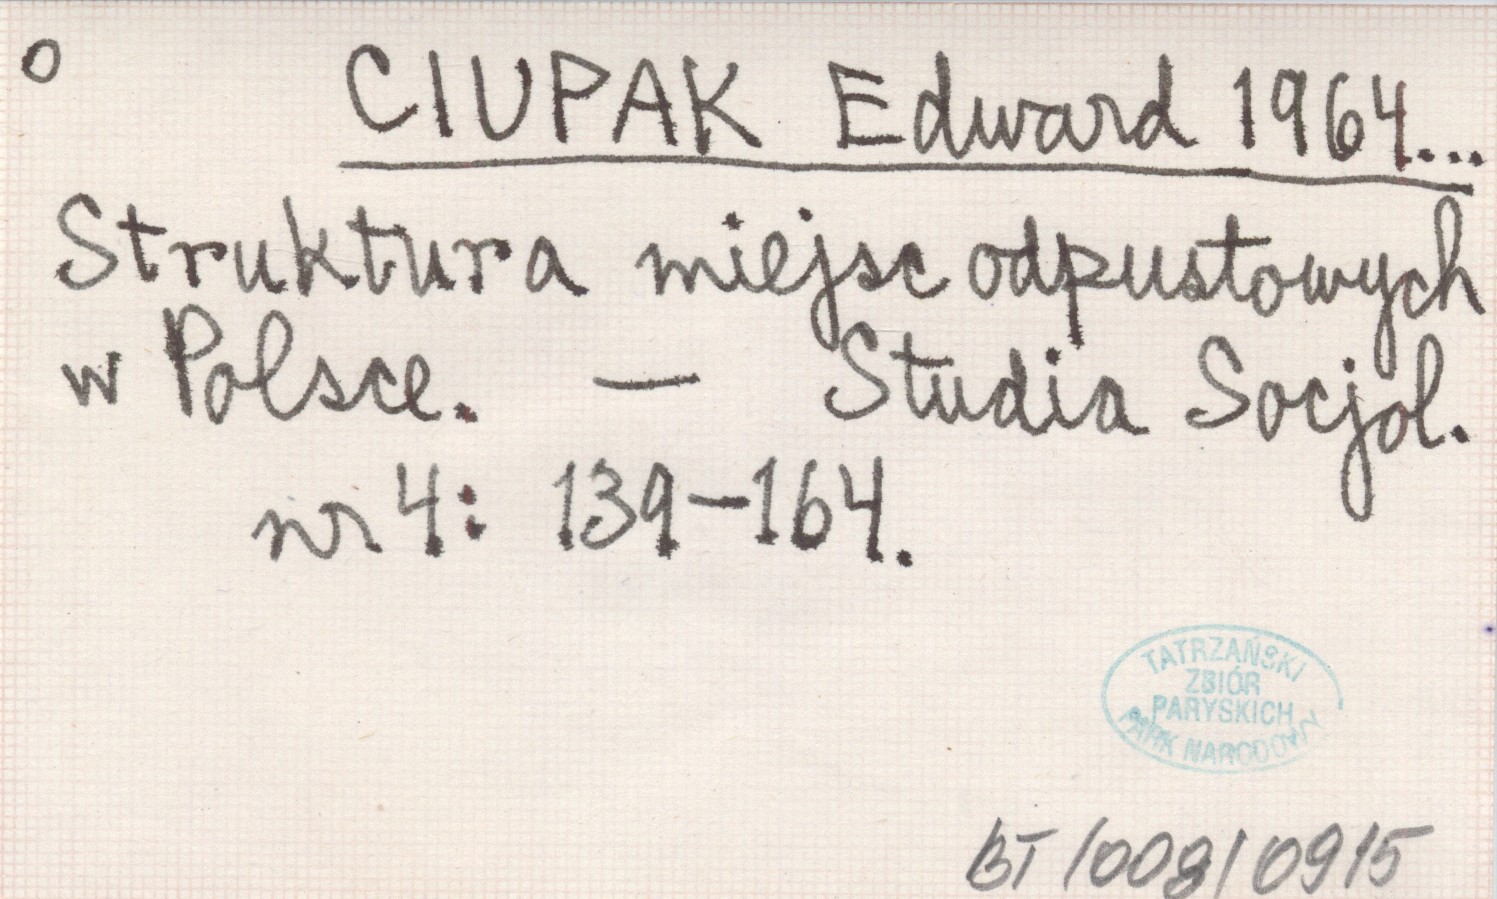 o
CIUPAK Edward 1964...
Struktura miejsc odpustowych
w Polsce. — Studia Socjol.
nr 4: 139-164.
TATRZAŃSKI
ZBIÓR
PARYSKICH
PARK NARODOWY
BT/008/0915